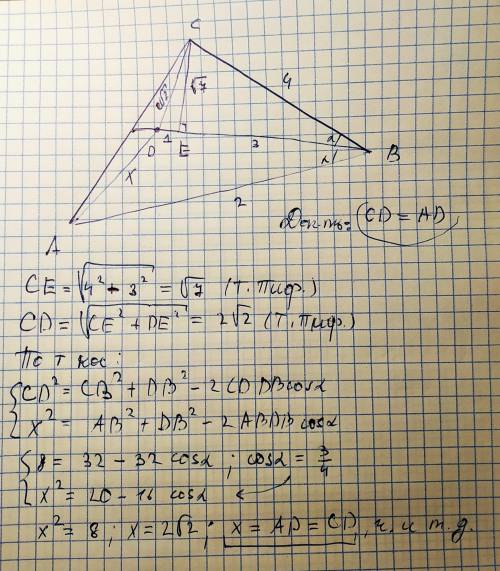 C
2√2
√7
4
1
D
E
3
α
α
B
x
2
A
Док-ть: CD = AD
CE = √4² - 3² = √7 (т. Пиф.)
CD = √CE² + DE² = 2√2 (т. Пиф.)
По т кос:
CD² = CB² + DB² - 2 CD DB cosα
x² = AB² + DB² - 2 AB DB cosα
8 = 32 - 32 cosα ; cosα = 3/4
x² = 20 - 16 cosα ←
x² = 8 ; x = 2√2 ; x = AD = CD, ч. и т. д.